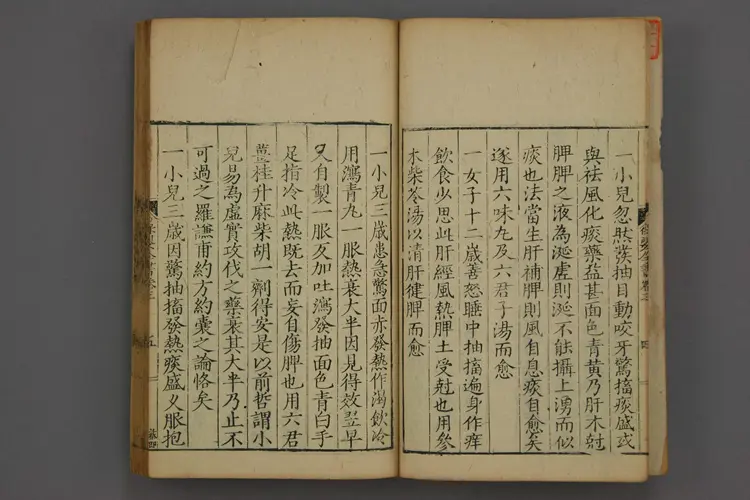 一小兒忽然發抽目動咬牙驚搐痰盛或
與祛風化痰藥益甚面色青黃乃肝木尅
脾脾之液為涎虛則涎不能攝上湧而似
痰也法當生肝補脾則風自息痰自愈矣
遂用六味丸及六君子湯而愈
一女子十二歲善怒睡中抽搐遍身作痒
飲食少思此肝經風熱脾土受尅也用參
朮柴苓湯以清肝健脾而愈
一小兒三歲患急驚面赤發熱作渴飲冷
用瀉青丸一服熱衰大半因見得效翌早
又自製一服反加吐瀉發抽面色青白手
足指冷此熱既去而妄自傷脾也用六君
薑桂升麻柴胡一劑得安是以前哲謂小
兒易為虛實攻伐之藥衰其大半乃止不
可過之羅謙甫約方約囊之論恪矣
一小兒三歲因驚抽搐發熱痰盛乂服抱
五